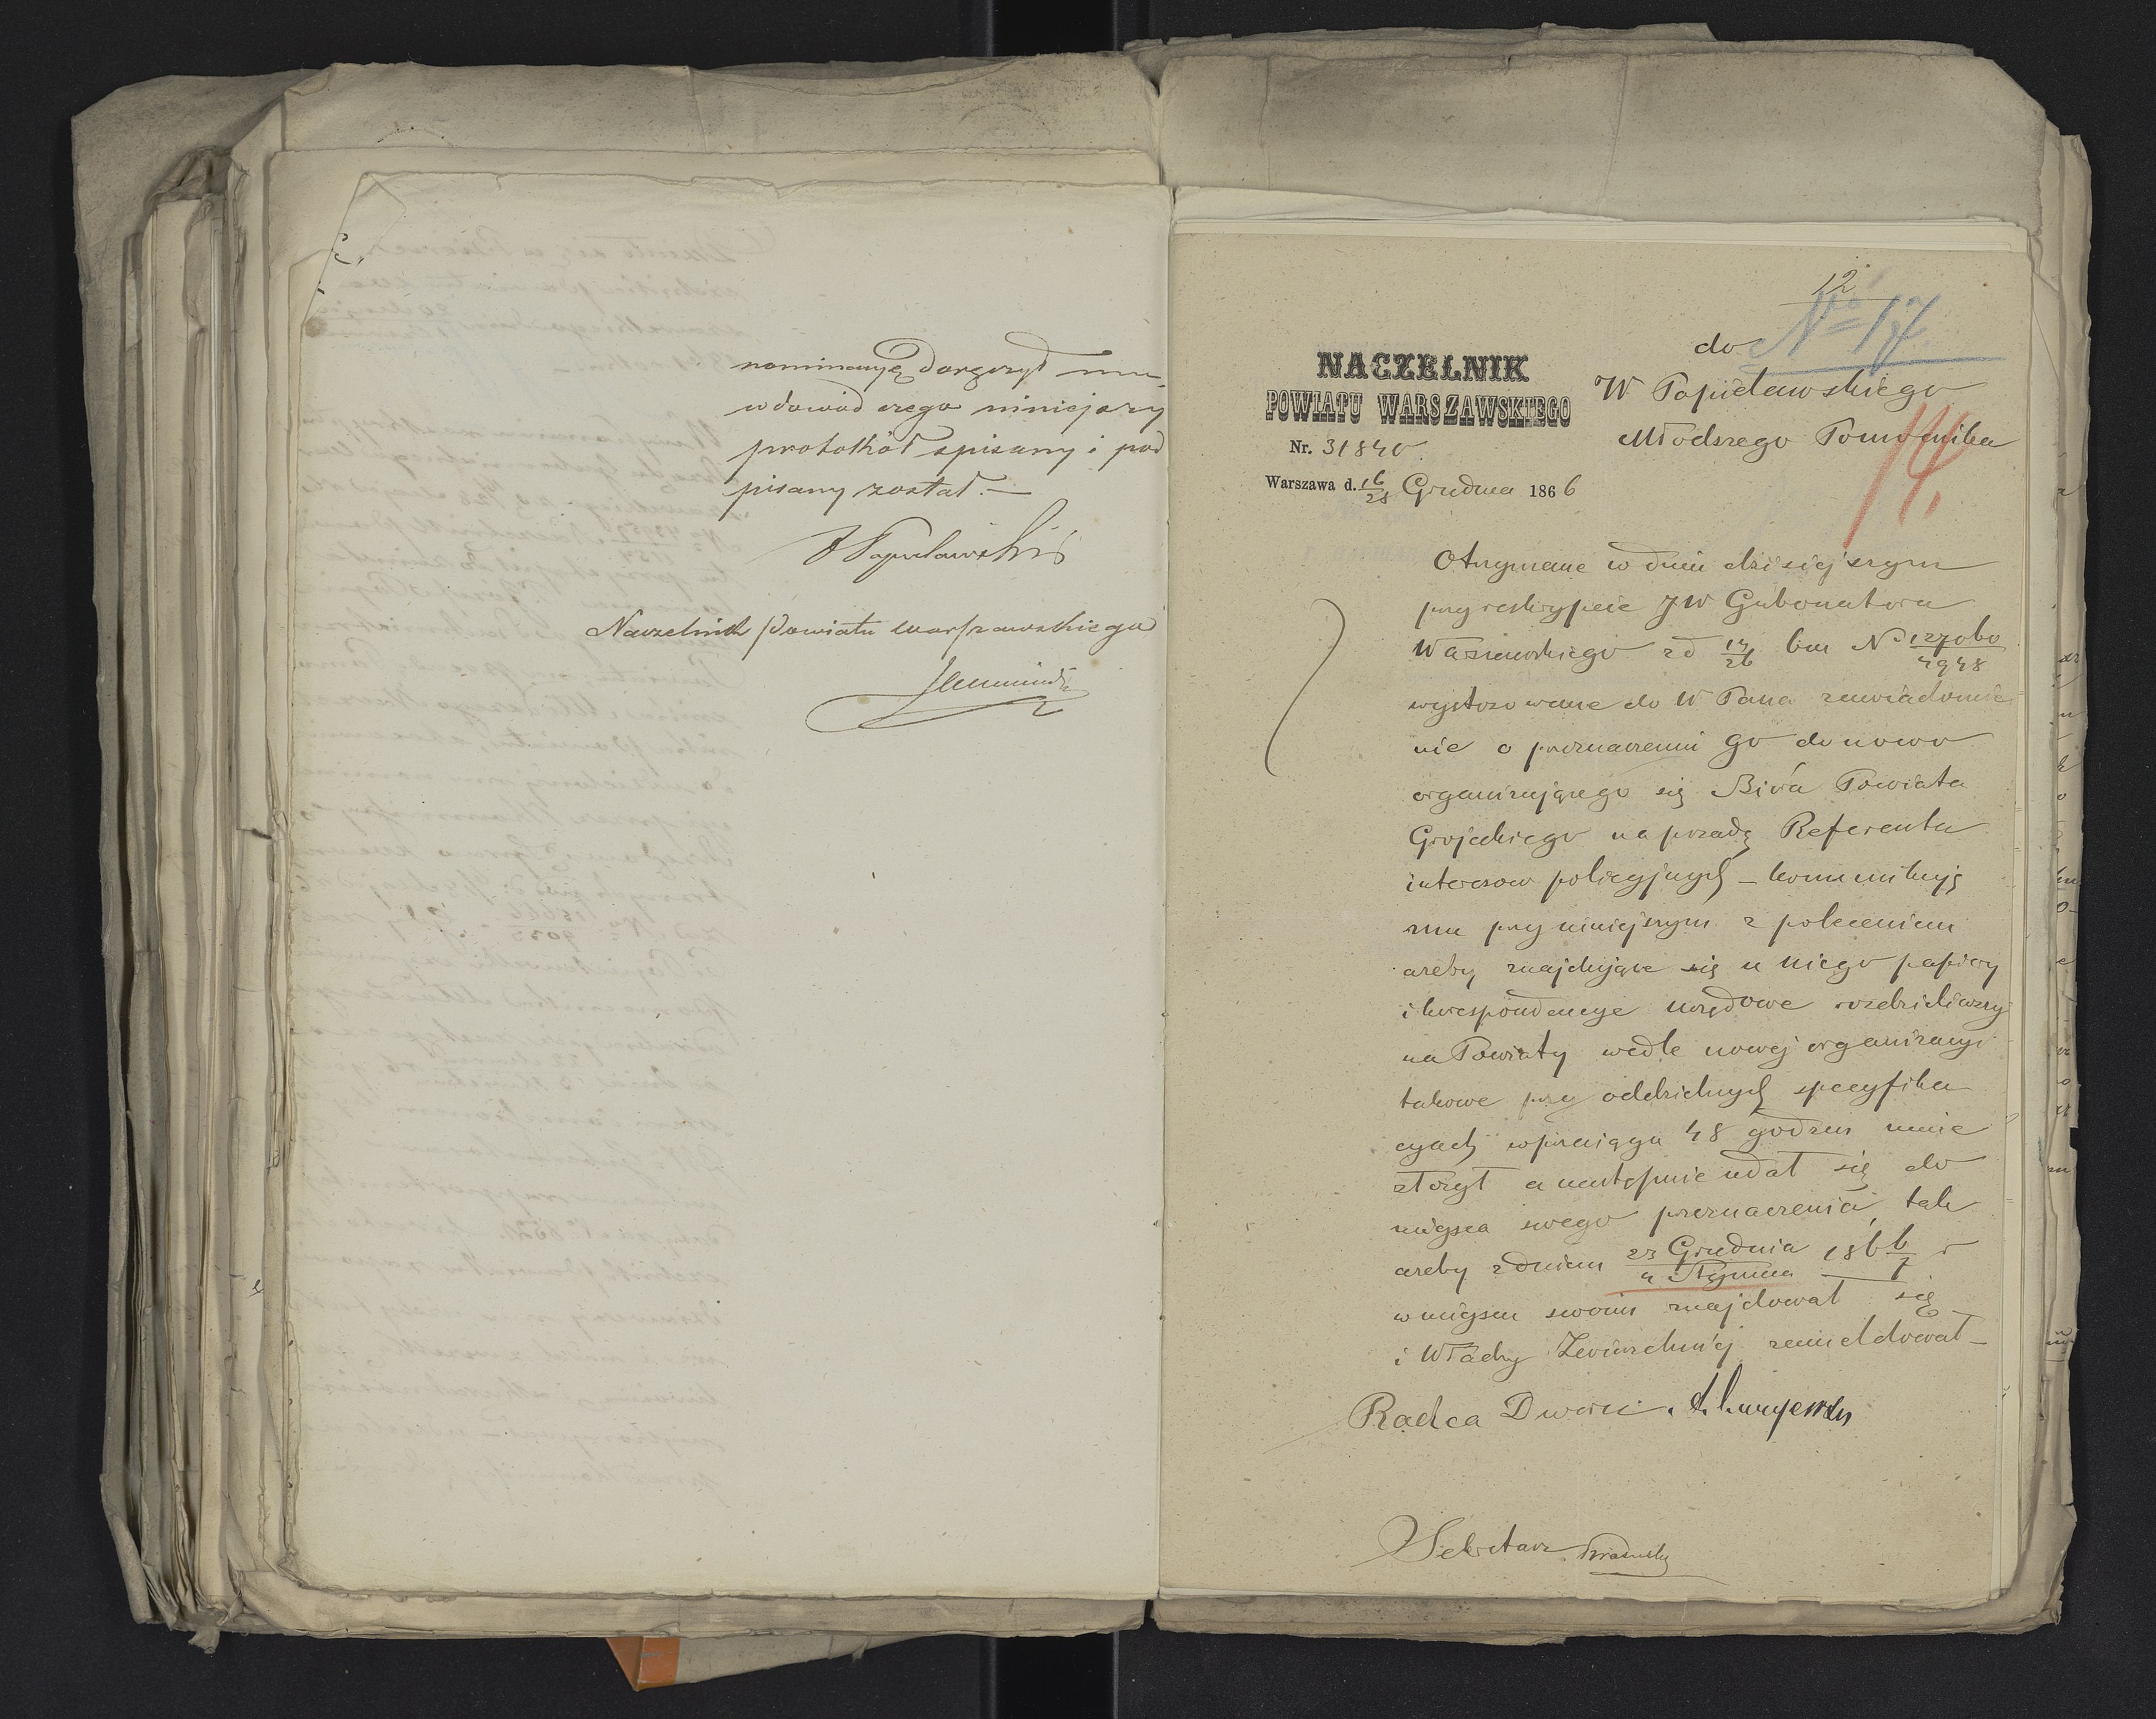 nominacyę doręczył mu,
w dowód czego niniejszy
protokół spisany i pod
pisany został. —
Popielawski
Naczelnik Powiatu Warszawskiego
12
№ 17
do
W Popielawskiego
Młodszego Pomocnika
14.
NACZELNIK
POWIATU WARSZAWSKIEGO
Nr. 31840
Warszawa d. 16/28 Grudnia 1866
Otrzymane w dniu dzisiejszym
przy reskrypcie JW Gubernatora
Warszawskiego zd 14/26 bm N 127060/4948
wystosowane do W Pana zawiadomie
nie o przeznaczeniu go do nowo
organizującego się Biura Powiatu
Grojeckiego na posadę Referenta
interesow policyjnych – komunikuję
mu przy niniejszym z poleceniem
ażeby znajdujące się u niego papiery
i korespondencye urzędowe rozdzieliwszy
na Powiaty wedle nowej organizacyi
takowe przy oddzielnych specyfika
cyach w przeciągu 48 godzin mnie
złożył a następnie udał się do
miejsca swego przeznaczenia, tak
ażeby z dniem 23 Grudnia/4 Stycznia 1866/7 r
w miejscu swoim znajdował się
i Władzy Zwierzchniej zameldował –
Radca Dworu
Sekretarz